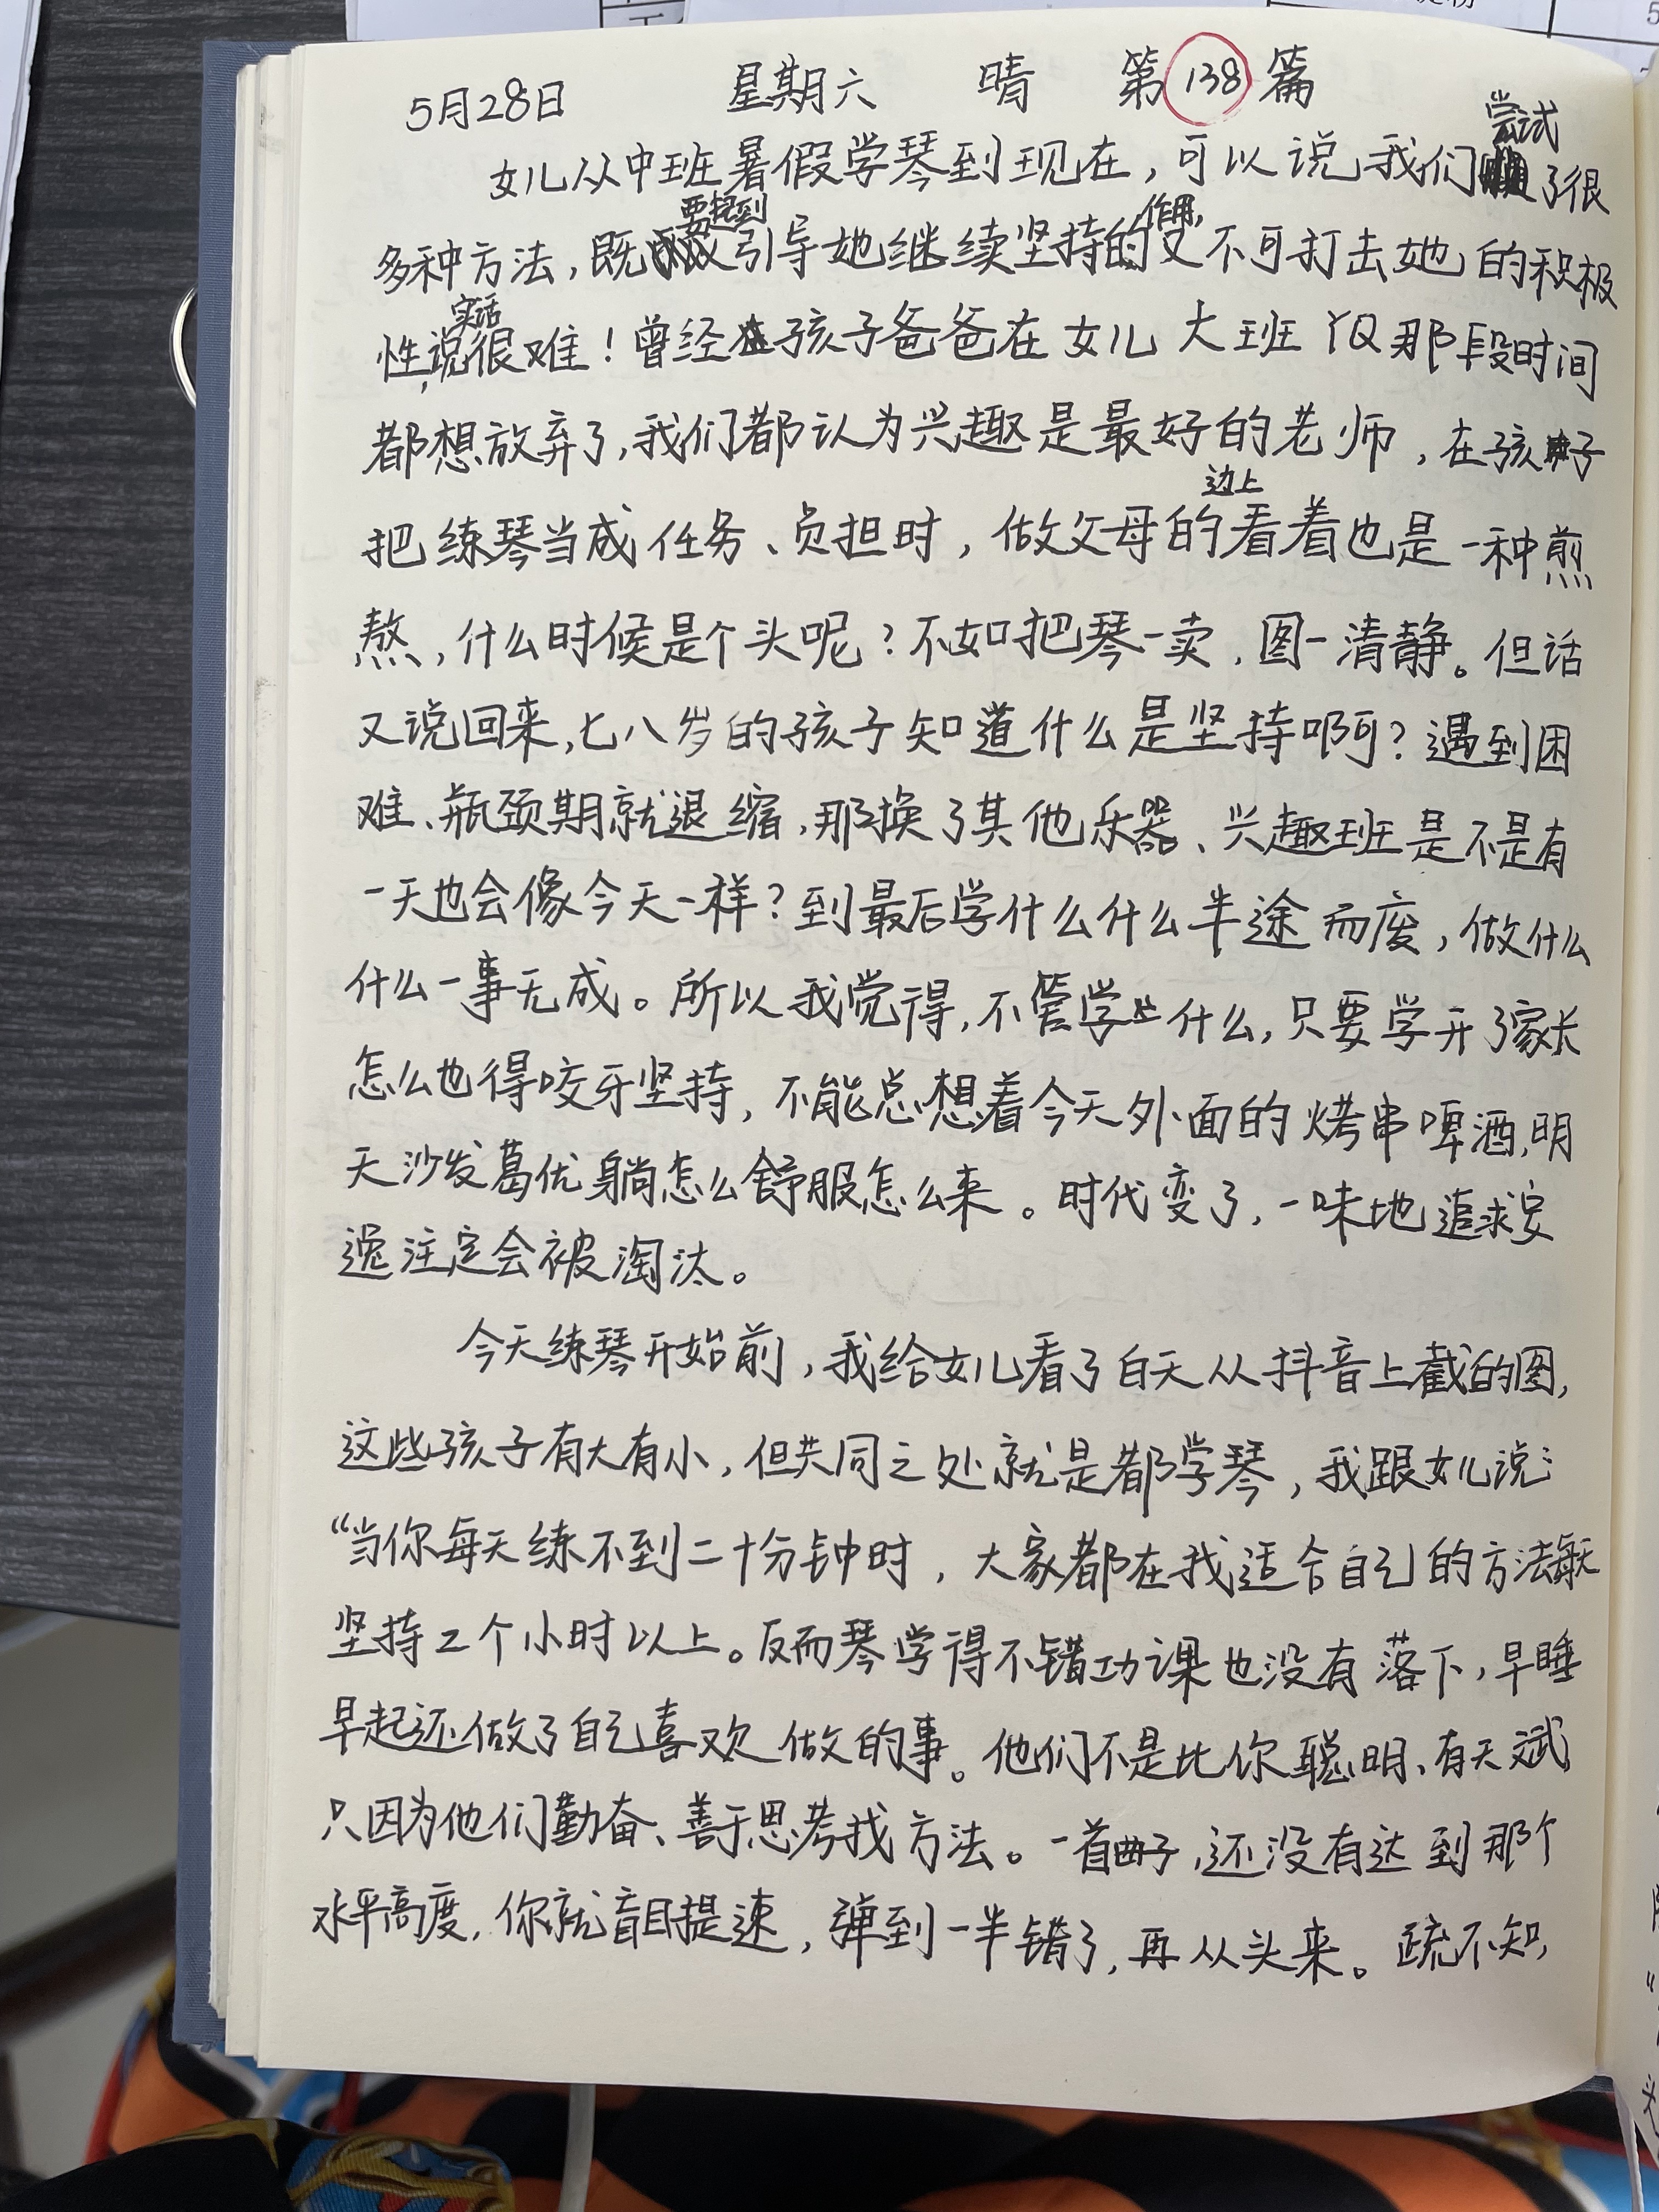 5月28日 星期六 晴 第138篇
女儿从中班暑假学琴到现在，可以说我们尝试了很
多种方法，既要起到引导她继续坚持的作用，又不可打击她的积极
性，说实话很难！曾经孩子爸爸在女儿大班YQ那段时间
都想放弃了，我们都认为兴趣是最好的老师，在孩子
把练琴当成任务、负担时，做父母的边上看着也是一种煎
熬，什么时候是个头呢？不如把琴一卖，图一清静。但话
又说回来，七八岁的孩子知道什么是坚持啊？遇到困
难、瓶颈期就退缩，那换了其他乐器、兴趣班是不是有
一天也会像今天一样？到最后学什么什么半途而废，做什么
什么一事无成。所以我觉得，不管学什么，只要学开了家长
怎么也得咬牙坚持，不能总想着今天外面的烤串啤酒，明
天沙发葛优躺怎么舒服怎么来。时代变了，一味地追求安
逸注定会被淘汰。
今天练琴开始前，我给女儿看了白天从抖音上截的图，
这些孩子有大有小，但共同之处就是都学琴，我跟女儿说：
“当你每天练不到二十分钟时，大家都在找适合自己的方法每天
坚持2个小时以上。反而琴学得不错功课也没有落下，早睡
早起还做了自己喜欢做的事。他们不是比你聪明、有天斌
只因为他们勤奋、善于思考找方法。一首曲子，还没有达到那个
水平高度，你就盲目提速，弹到一半错了，再从头来。疏不知，